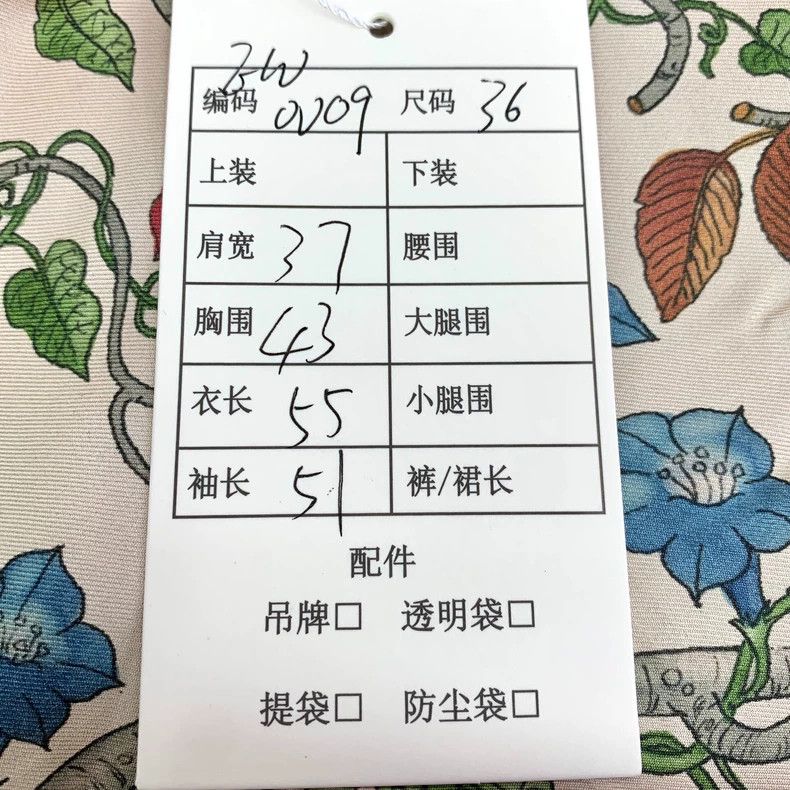 ZW
编码 0V09 尺码 36
上装 下装
肩宽 37 腰围
胸围 43 大腿围
衣长 55 小腿围
袖长 51 裤/裙长
配件
吊牌□ 透明袋□
提袋□ 防尘袋□